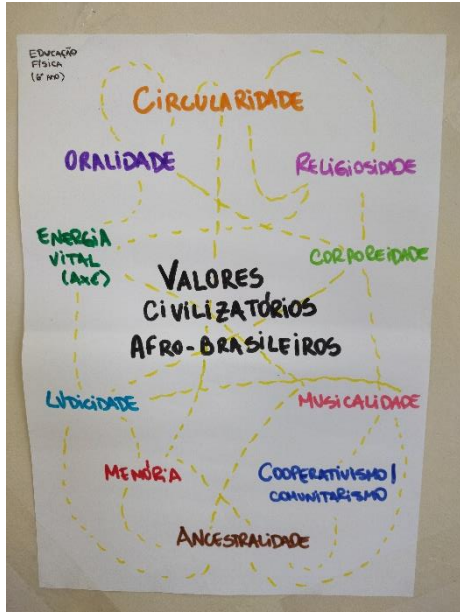 EDUCAÇÃO
FÍSICA
(6º ANO)
CIRCULARIDADE
ORALIDADE
RELIGIOSIDADE
ENERGIA
VITAL
(AXÉ)
CORPOREIDADE
VALORES
CIVILIZATÓRIOS
AFRO-BRASILEIROS
LUDICIDADE
MUSICALIDADE
MEMÓRIA
COOPERATIVISMO/
COMUNITARISMO
ANCESTRALIDADE